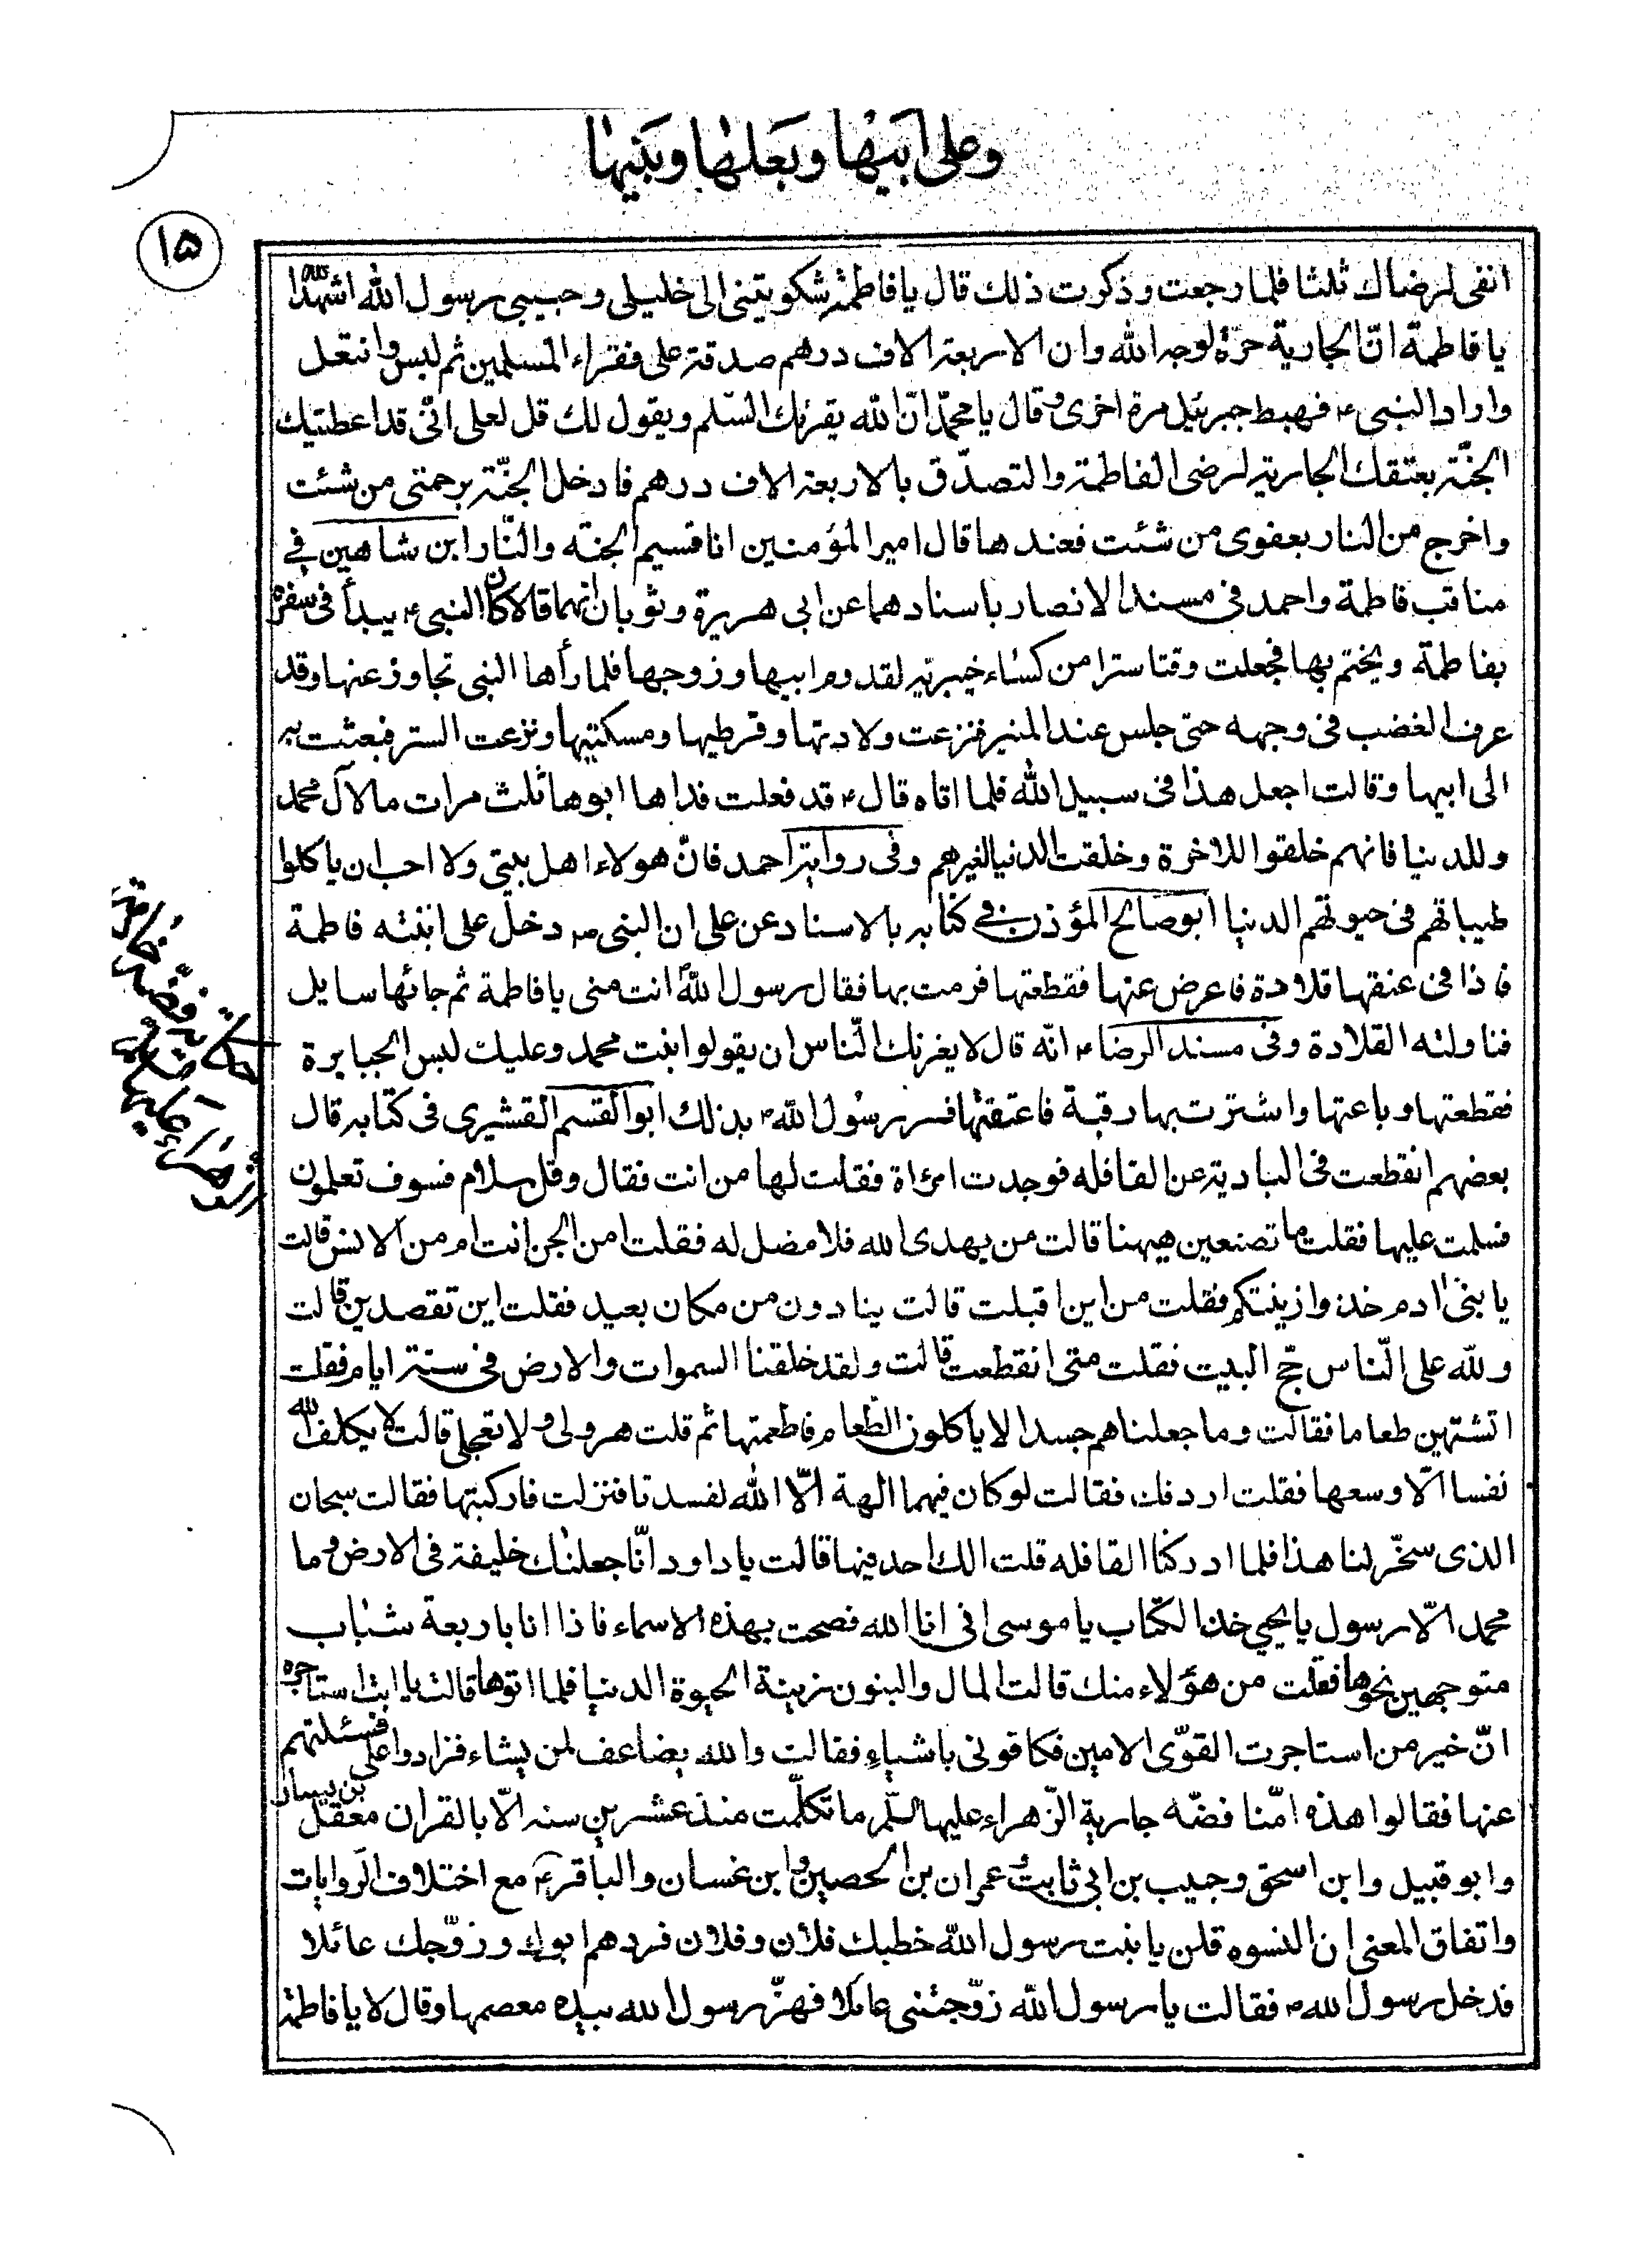 وعلى ابيها وبعلها وبنيها
١٥
انفى لرضاك ثلثا فلما رجعت وذكرت ذلك قال يا فاطمة شكوتينى الى خليلى وحبيبى رسول الله اشهد الله
يا فاطمة انّ الجارية حرّة لوجه الله وان الاربعة الاف درهم صدقة على فقراء المسلمين ثم لبس وانتعل
واراد النبى ص فهبط جبرئيل مرة اخرى وقال يا محمّد انّ الله يقرئك السّلم ويقول لك قل لعلى انّى قد اعطيتك
الجنّة بعتقك الجارية لرضى الفاطمة والتصدّق بالاربعة الاف درهم فادخل الجنّة برحمتى من شئت
واخرج من النار بعفوى من شئت فعندها قال امير المؤمنين انا قسيم الجنة والنّار ابن شاهين فى
مناقب فاطمة واحمد فى مسند الانصار باسنادهما عن ابى هريرة وثوبان انهما قالا كان النبى ص يبدأ فى سفره
بفاطمة ويختم بها فجعلت وقتا سترا من كساء خيبرية لقدوم ابيها وزوجها فلما رأها النبى تجاوز عنها وقد
عرف الغضب فى وجهه حتى جلس عند المنبر فنزعت ولادتها وقرطيها ومسكتيها ونزعت الستر فبعثت به
الى ابيها وقالت اجعل هذا فى سبيل الله فلما اتاه قال ص قد فعلت فداها ابوها ثلث مرات ما لآل محمد
وللدنيا فانهم خلقوا للاخرة وخلقت الدنيا لغيرهم وفى رواية احمد فانّ هولاء اهل بيتى ولا احب ان ياكلوا
طيباتهم فى حيوتهم الدنيا ابو صالح المؤذن فى كتابه بالاسناد عن على ان النبى ص دخل على ابنته فاطمة
فاذا فى عنقها قلادة فاعرض عنها فقطعتها فرمت بها فقال رسول الله انت منى يا فاطمة ثم جائها سايل
فناولته القلادة وفى مسند الرضا ع انّه قال لا يغرنك النّاس ان يقولوا بنت محمد وعليك لبس الجبابرة
فقطعتها وباعتها واشترت بها رقبة فاعتقتها فسر رسول الله ص بذلك ابو القسم القشيرى فى كتابه قال
بعضهم انقطعت فى البادية عن القافله فوجدت امرأة فقلت لها من انت فقال وقل سلام فسوف تعلمون
فسلمت عليها فقلت ما تصنعين هيهنا قالت من يهدى الله فلا مضل له فقلت امن الجن انت ام من الانس قالت
يا بنى ادم خذوا زينتكم فقلت من اين اقبلت قالت ينادون من مكان بعيد فقلت اين تقصدين قالت
ولله على النّاس حج البيت فقلت متى انقطعت قالت ولقد خلقنا السموات والارض فى ستة ايام فقلت
اتشتهين طعاما فقالت وما جعلناهم جسدا لا ياكلون الطعام فاطعمتها ثم قلت هرولى ولا تعجلى قالت لا يكلف الله
نفسا الّا وسعها فقلت اردفك فقالت لو كان فيهما الهة الّا الله لفسدتا فنزلت فاركبتها فقالت سبحان
الذى سخّر لنا هذا فلما ادركنا القافله قلت الك احد فيها قالت يا داود انّا جعلناك خليفة فى الارض وما
محمد الّا رسول يا يحيى خذ الكتاب يا موسى انى انا الله فصحت بهذه الاسماء فاذا انا باربعة شباب
متوجهين نحوها فقلت من هؤلاء منك قالت المال والبنون زينة الحيوة الدنيا فلما اتوها قالت يا ابت استاجره
انّ خير من استاجرت القوّى الامين فكافونى باشياء فقالت والله يضاعف لمن يشاء فزادوا على فسئلتهم
عنها فقالوا هذه امّنا فضّه جارية الزّهراء عليها السّلم ما تكلّمت منذ عشرين سنه الّا بالقران معقل بن يسار
وابو قبيل وابن اسحق وحبيب بن ابى ثابت وعمران بن الحصين وابن غسان والباقر ع مع اختلاف الروايات
واتفاق المعنى ان النسوه قلن يا بنت رسول الله خطبك فلان وفلان فردهم ابوك وزوّجك عائلا
فدخل رسول الله ص فقالت يا رسول الله زوّجتنى عائلا فهزّ رسول الله بيده معصمها وقال لا يا فاطمة
حكاية فضّه خادمة
الزهراء عليها